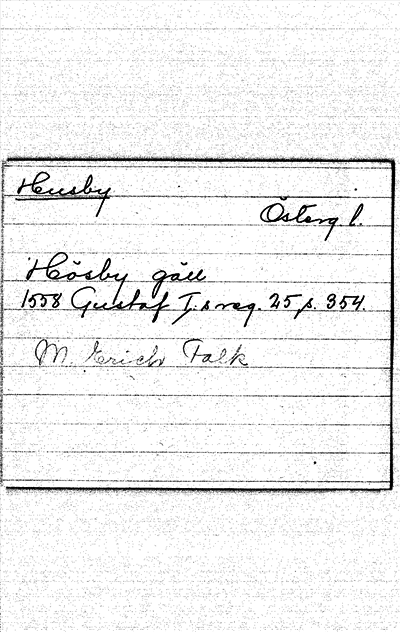 Husby
Österg. l.
Hösby gäll
1558 Gustaf I.s reg. 25 s. 354.
M. Erich Falk